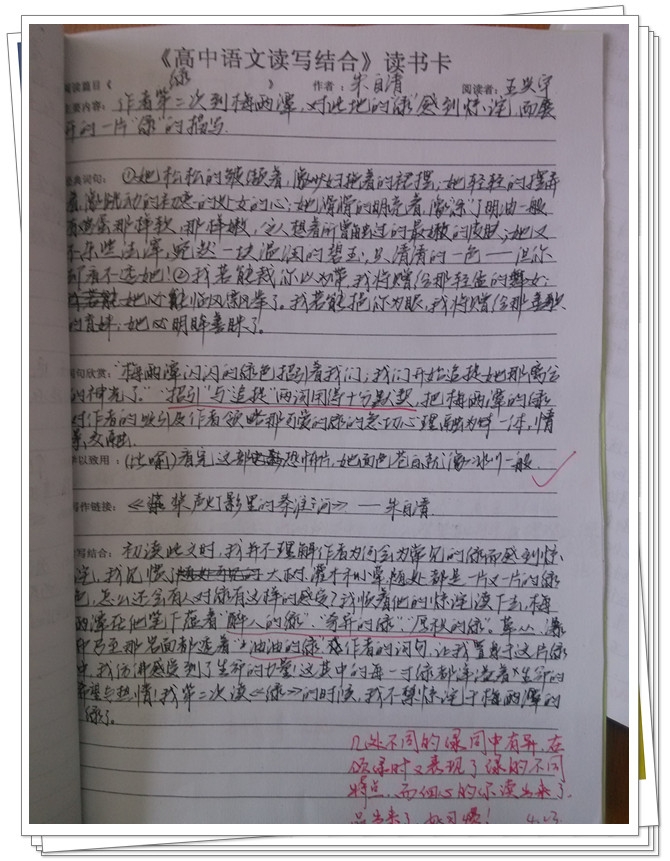 《高中语文读写结合》读书卡
阅读篇目《 绿 》 作者：朱自清 阅读者：王
主要内容：作者第二次到梅雨潭，对此地的"绿"感到惊诧，而展
开的一片"绿"的描写.
经典词句：①她松松的皱缬着，像少妇拖着的裙摆；她轻轻的摆弄
着，像跳动的初恋的处女的心；她滑滑的明亮着，像涂了明油一般
有鸡蛋那样软，那样嫩，令人想着所曾触过的最嫩的皮肤；她又
不杂些法滓，宛然一块温润的碧玉，只清清的一色——但你
却看不透她！②我若能裁你以为带，我将赠给那轻盈的舞女；
她必能临风飘举了。我若能挹你为眼，我将赠给那善歌
的盲妹；她必明眸善睐了。
词句欣赏："梅雨潭闪闪的绿色招引着我们；我们开始追捉她那离合
的神光了。""招引"与"追捉"两词用得十分默契，把梅雨潭的绿
对作者的吸引及作者领略那可爱的绿的急切心理融为一体，情
景交融.
学以致用：(比喻)看完这部恐怖片，她面色苍白就像冰川一般.
写作链接：《桨声灯影里的秦淮河》——朱自清.
读写结合：初读此文时，我并不理解作者为何会为常见的绿而感到惊
诧，我见惯了大树、灌木和小草，随处都是一片又一片的绿
色，怎么还会有人对绿有这样的感受？我怀着他的惊诧读下去，梅
雨潭在他笔下蕴着"醉人的绿"、"奇异的绿"、"厚积的绿"。草丛、瀑
布乃至那岩面都透着"油油的绿"。作者的词句，让我置身于这片绿
中，我仿佛感受到了生命的力量！这其中的每一寸绿都洋溢着生命的
希望与热情！我第二次读《绿》的时候，我不禁惊诧于梅雨潭的
绿了。
几处不同的绿同中有异，在
领绿时又表现了绿的不同
特点，而细心的你读出来了，
品出来了，好习惯！